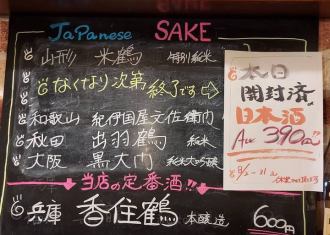 Japanese SAKE
山形 米鶴 特別純米
なくなり次第終了です
和歌山 紀伊国屋文左衛門
秋田 出羽鶴 純米
大阪 黒大門 純米大吟醸
当店の定番酒!!
兵庫 香住鶴 本醸造 600円
本日
開封済
日本酒
ALL 390円